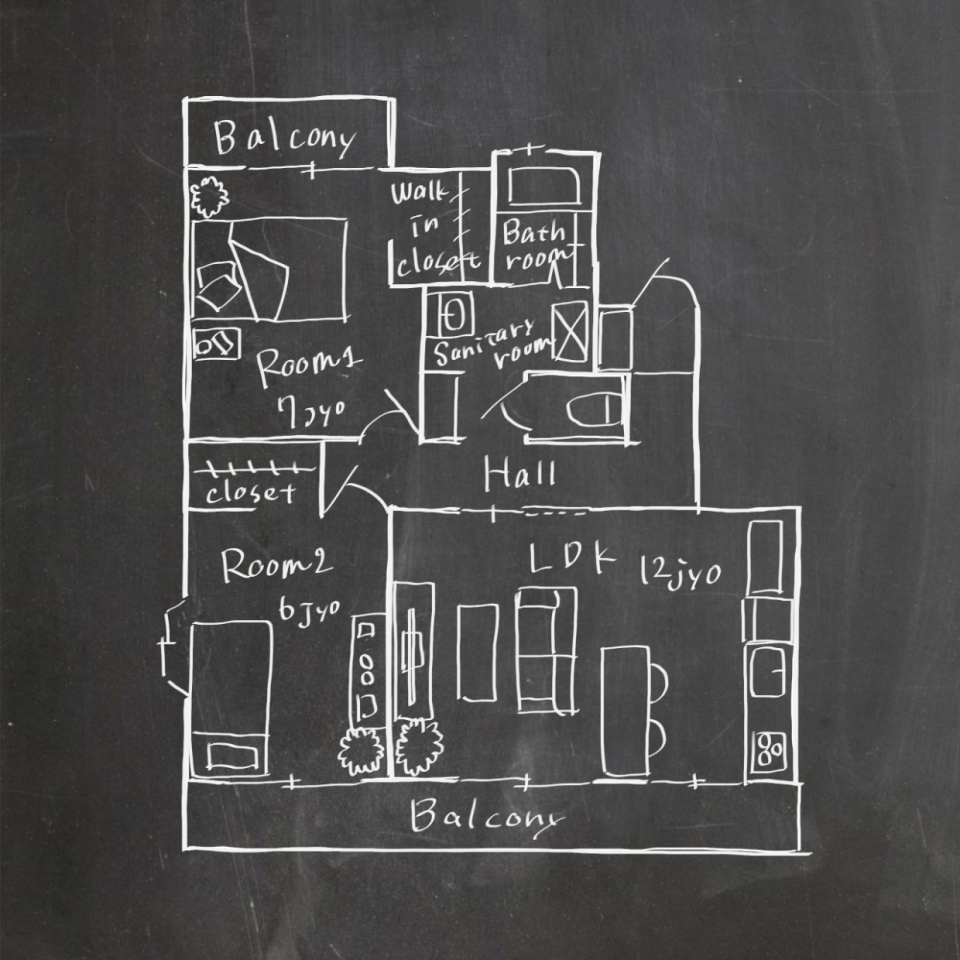 Balcony
Walk
in
closet
Bath
room
Sanitary
room
Room1
7jyo
Hall
closet
Room2
6jyo
LDK 12jyo
Balcony